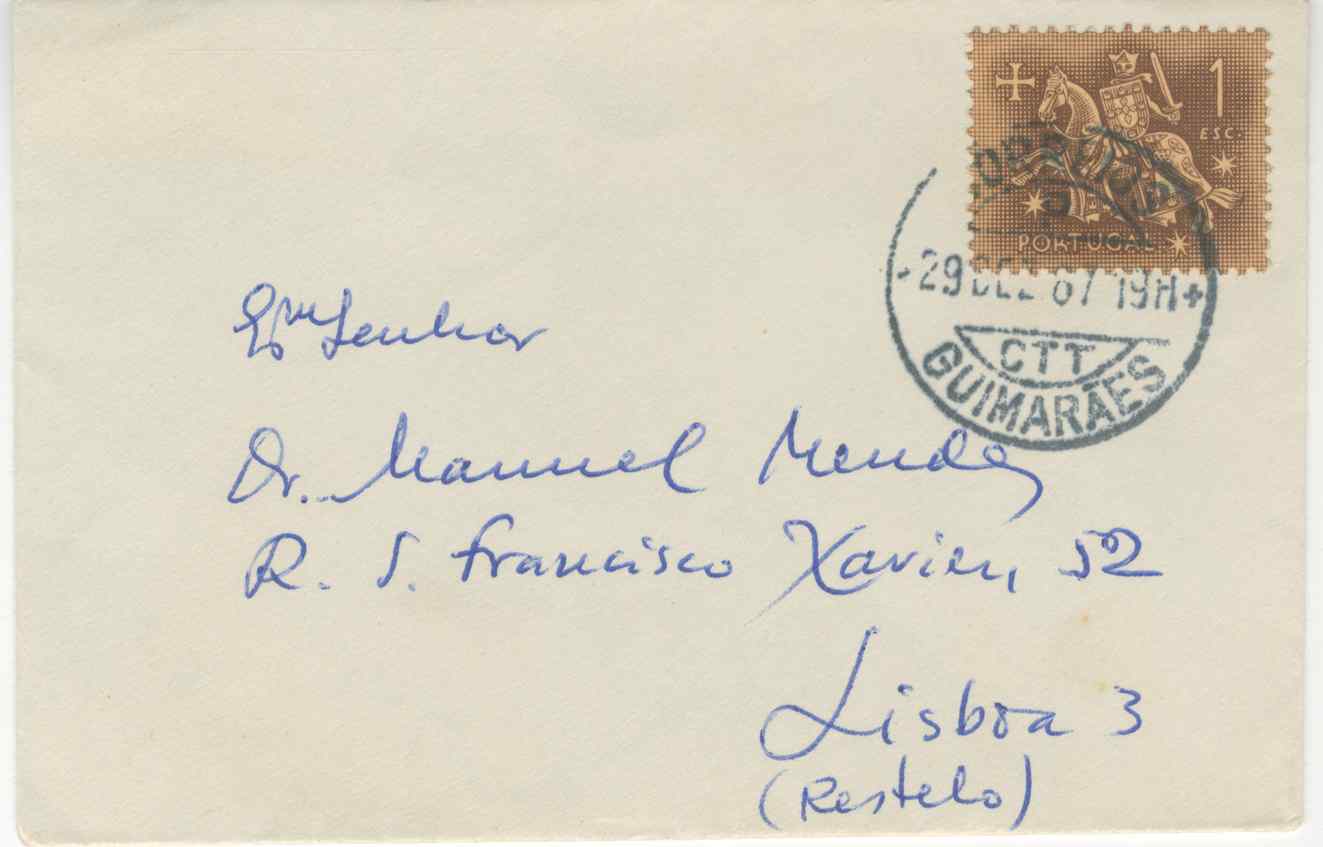 1
ESC.
PORTUGAL
-29 DEZ 67 19H+
CTT
GUIMARÃES
Exmo Senhor
Dr. Manuel Mendes
R. S. Francisco Xavier, 52
Lisboa 3
(Restelo)